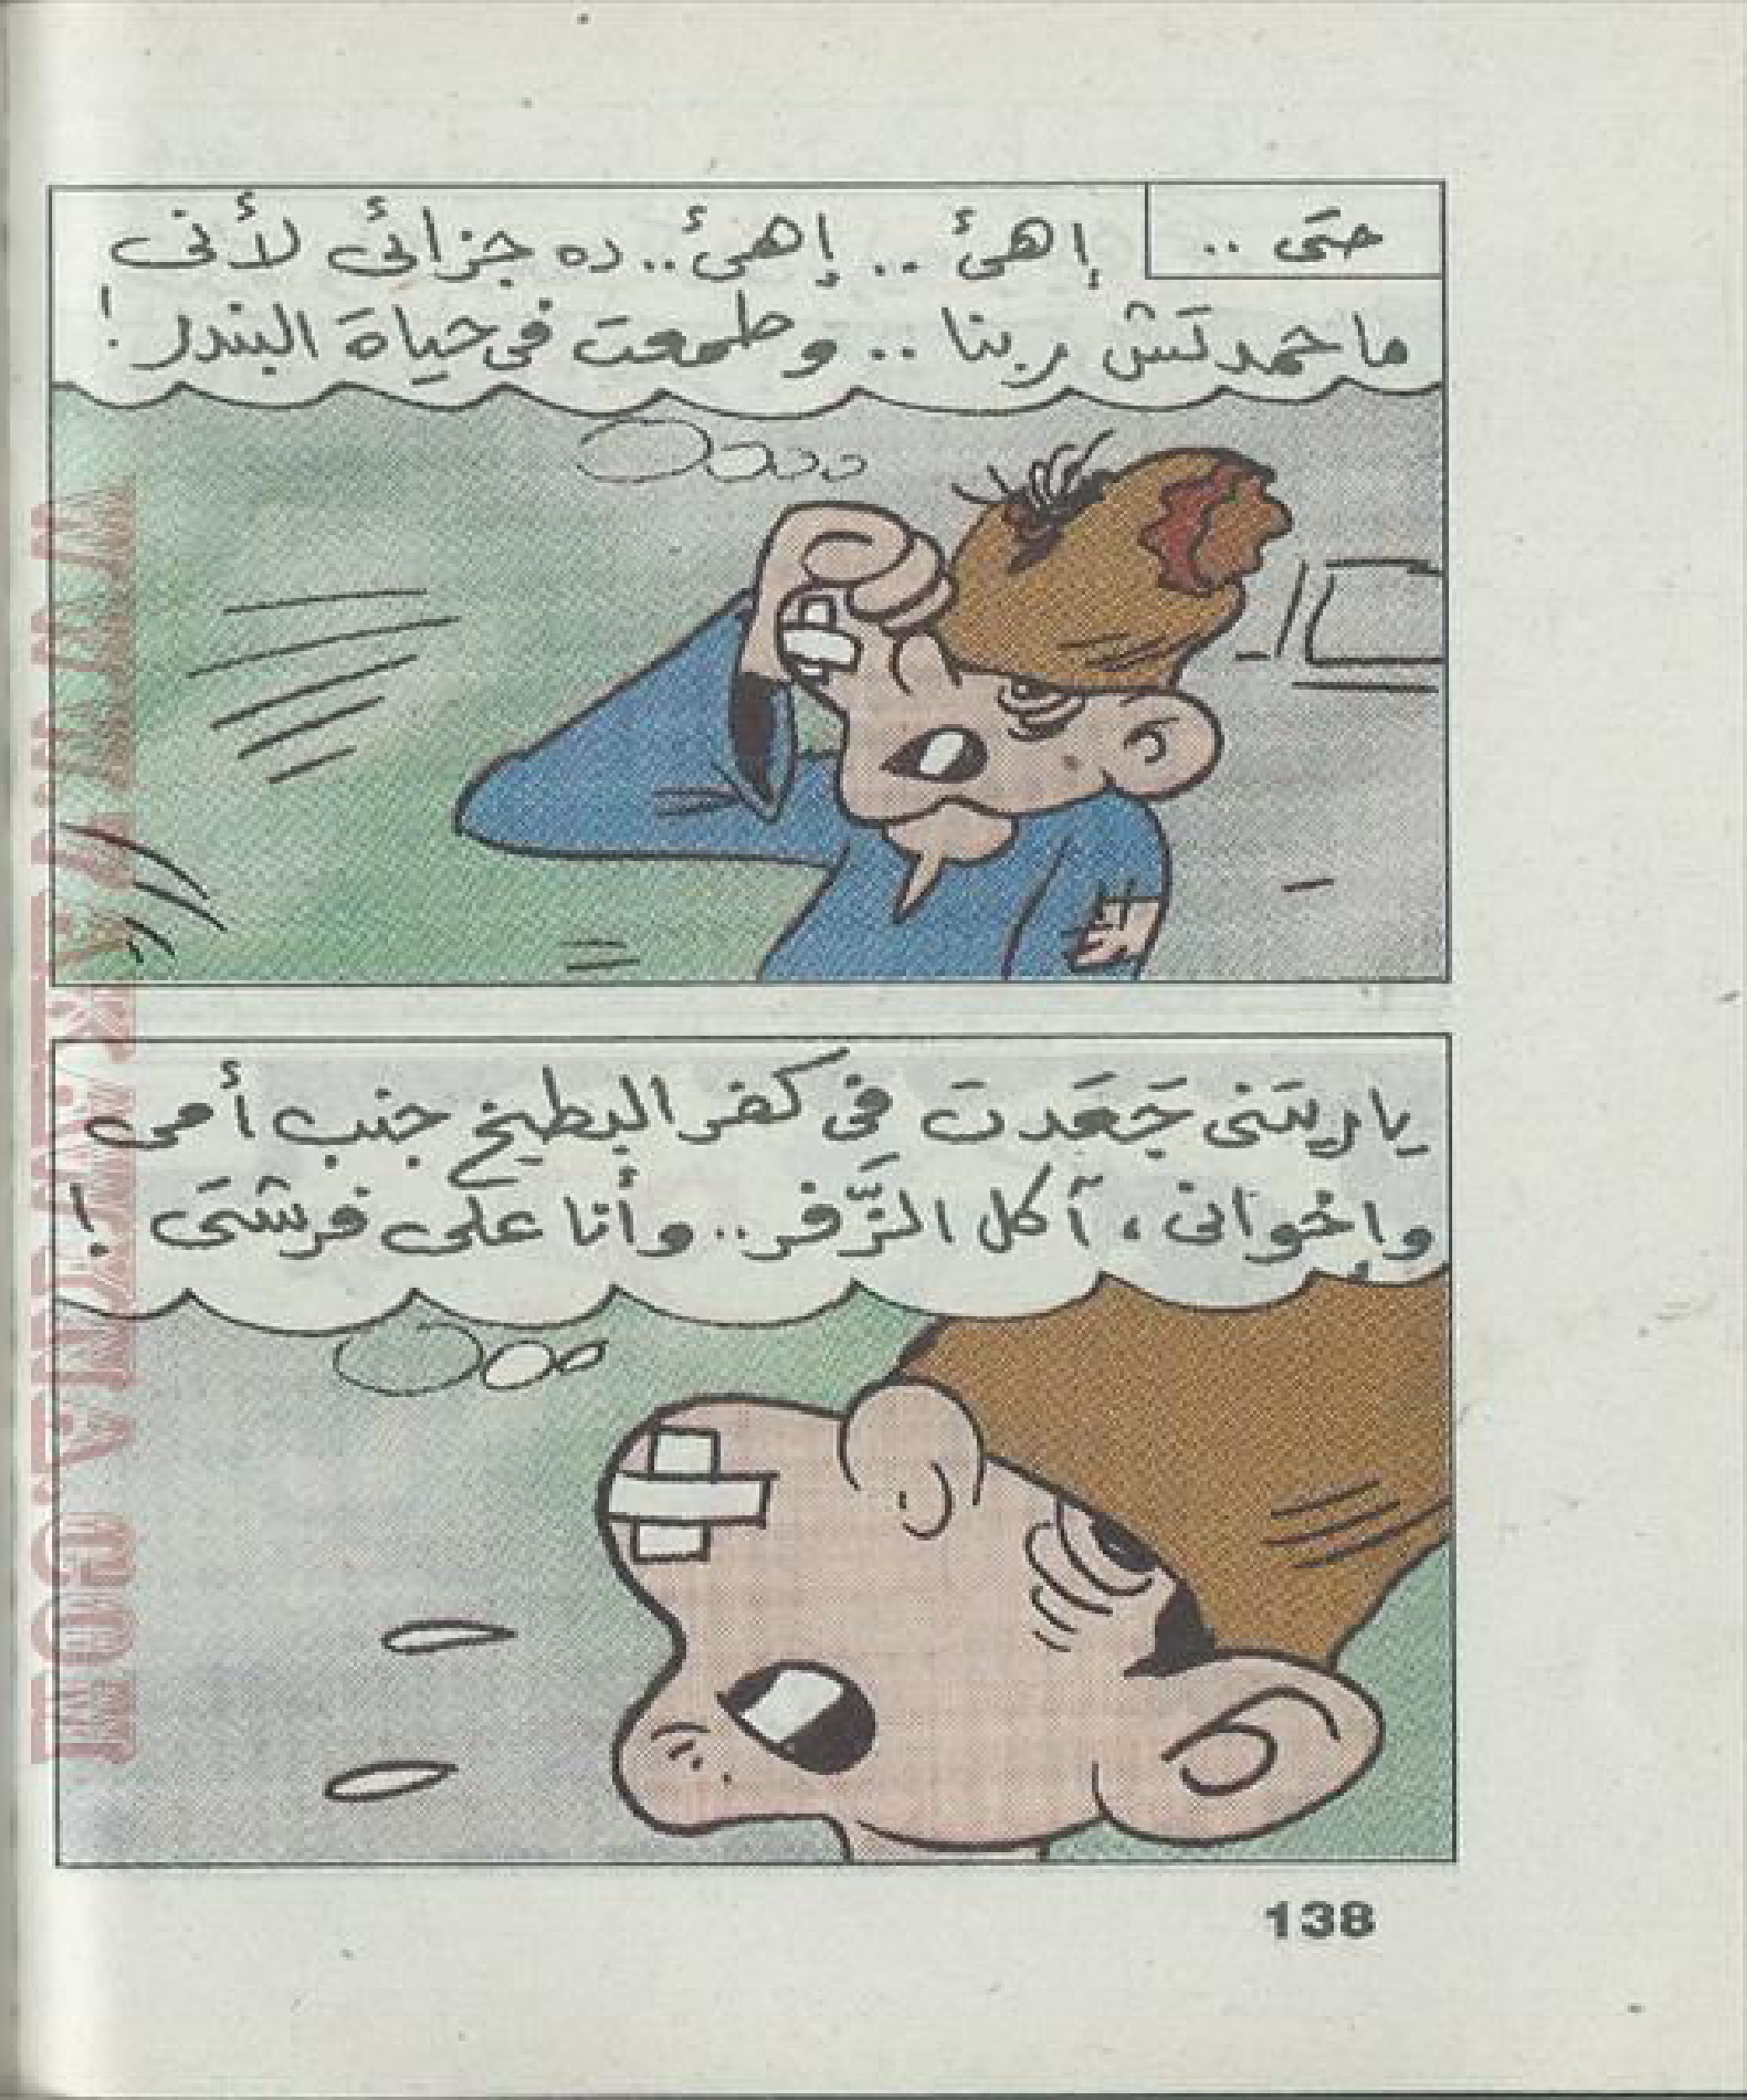 حتى ..
إهئ .. إهئ.. ده جزائى لأنى
ما حمدتش ربنا .. وطمعت فى حياة البندر !
ياريتنى جَعَدت فى كفر البطيخ جنب أمى
وإخواتى ، آكل الزَّفر .. وأنا على فرشتى !
138